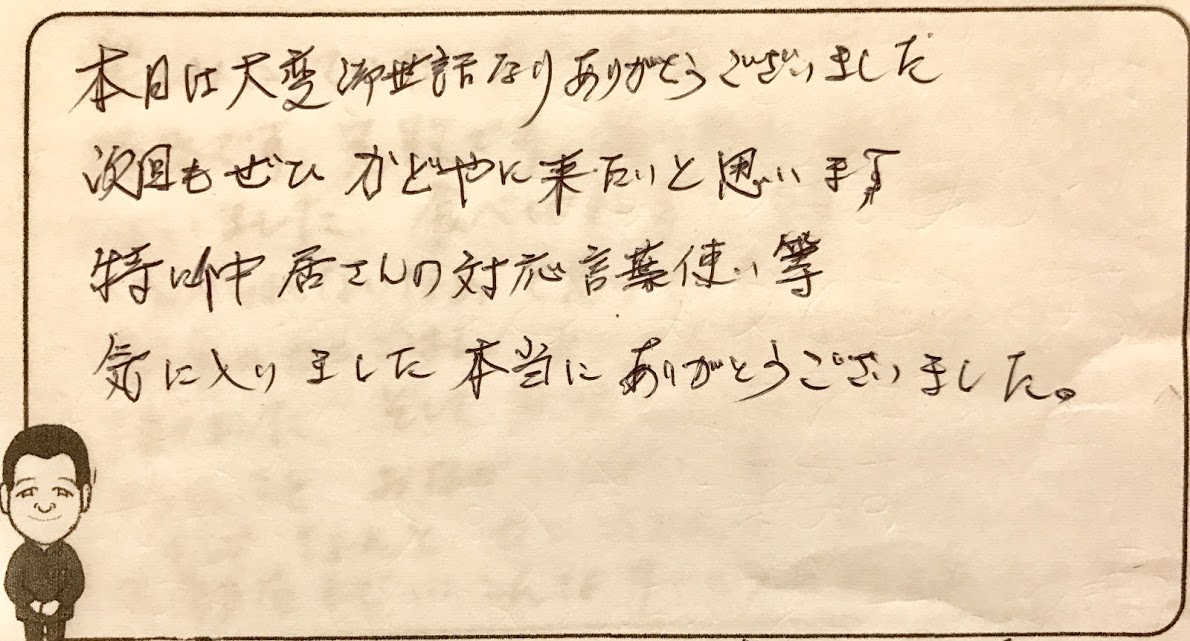 本日は大変御世話なりありがとうございました
次回もぜひかどやに来たいと思います
特に仲居さんの対応言葉使い等
気に入りました本当にありがとうございました。